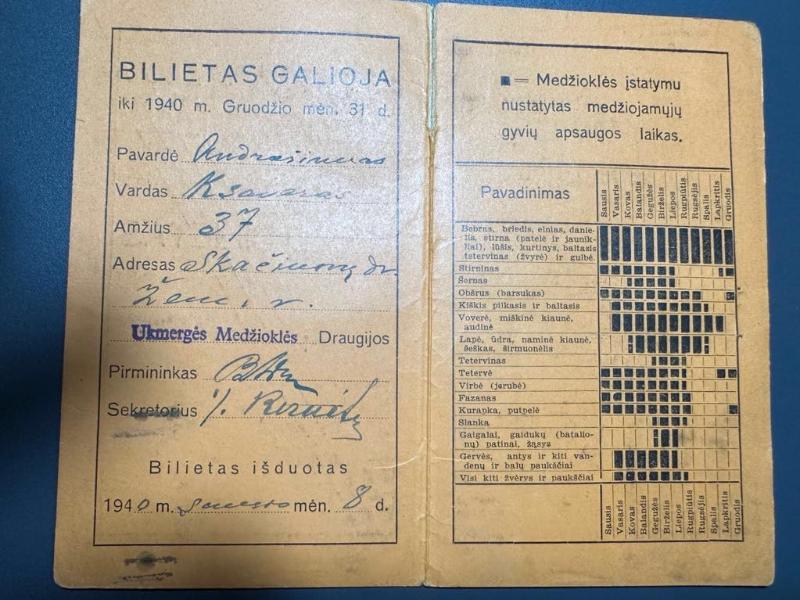 BILIETAS GALIOJA
iki 1940 m. Gruodžio mėn. 31 d.
Pavardė
Vardas Ksaveras
Amžius 37
Adresas Skačiūnų dv.
Žem. v.
Ukmergės Medžioklės Draugijos
Pirmininkas
Sekretorius
Bilietas išduotas
1940 m. sausio mėn. 8 d.
■ = Medžioklės įstatymu
nustatytas medžiojamųjų
gyvių apsaugos laikas.
Pavadinimas Sausis Vasaris Kovas Balandis Gegužės Birželis Liepos Rugpiūtis Rugsėjis Spalis Lapkritis Gruodis
Bebras, briedis, elnias, danie-
lis, stirna (patelė ir jaunik-
liai), lūšis, kurtinys, baltasis
tetervinas (žvyrė) ir gulbė.
Stirninas
Šernas
Obšrus (barsukas)
Kiškis pilkasis ir baltasis
Voverė, miškinė kiaunė,
audinė
Lapė, ūdra, naminė kiaunė,
šeškas, širmuonėlis
Tetervinas
Tetervė
Virbė (jerubė)
Fazanas
Kurapka, putpelė
Slanka
Gaigalai, gaidukų (batalio-
nų) patinai, žąsys
Gervės, antys ir kiti van-
denų ir balų paukščiai
Visi kiti žvėrys ir paukščiai
Sausis Vasaris Kovas Balandis Gegužės Birželis Liepos Rugpiūtis Rugsėjis Spalis Lapkritis Gruodis